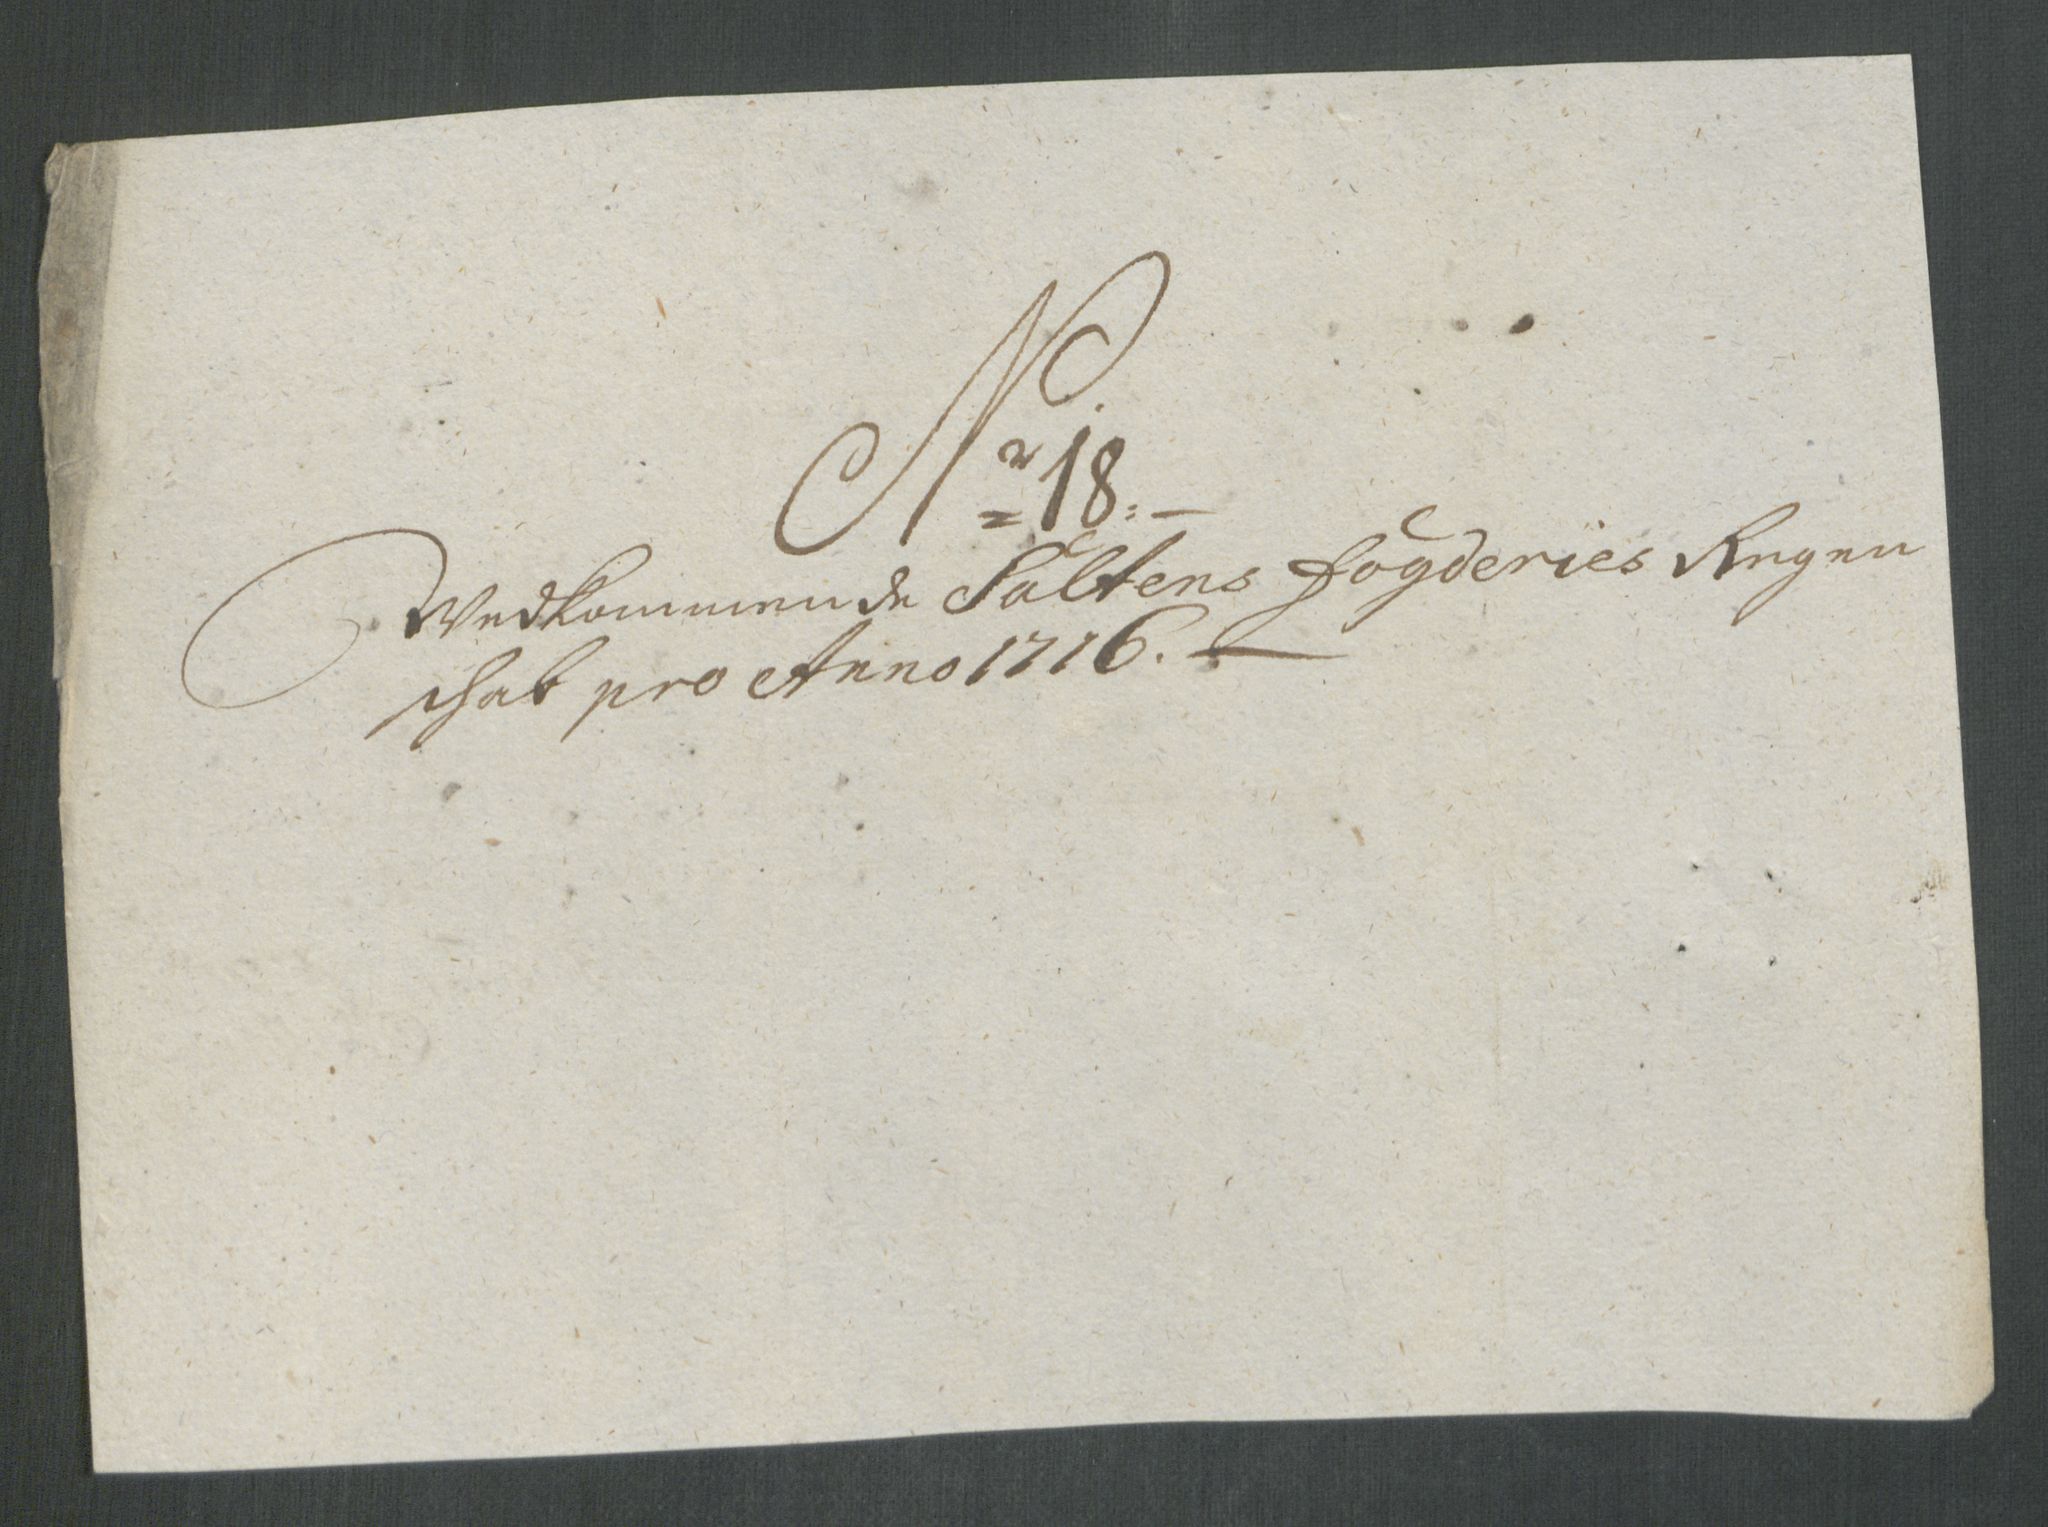 Nr 18.
Vedkommende Saltens Fogderies Regen
schab pro Anno 1716.